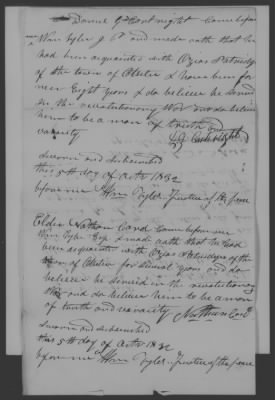 Daniel G Cortright Came before
Wm Tyler J. P and made oath that he
had been acquainted with Ozias
of the town of & have been for
near Eight years & do believe he served
in the revolutionary War and do believe
him to be a man of truth and
varacity
D G Cortright
Sworn and subscribed
this 5th day of Octr 1832
before me Wm Tyler Justice of the Peace
Elder Nathan Cord Came before me
Wm Tyler Esq & made oath that he had
been acquainted with Ozias
of the town of for Several years and do
believe he served in the revolutionary
War and do believe him to be a man
of truth and varacity Nathan Cord
Sworn and subscribed
this 5th day of Octr 1832
before me Wm Tyler Justice of the Peace